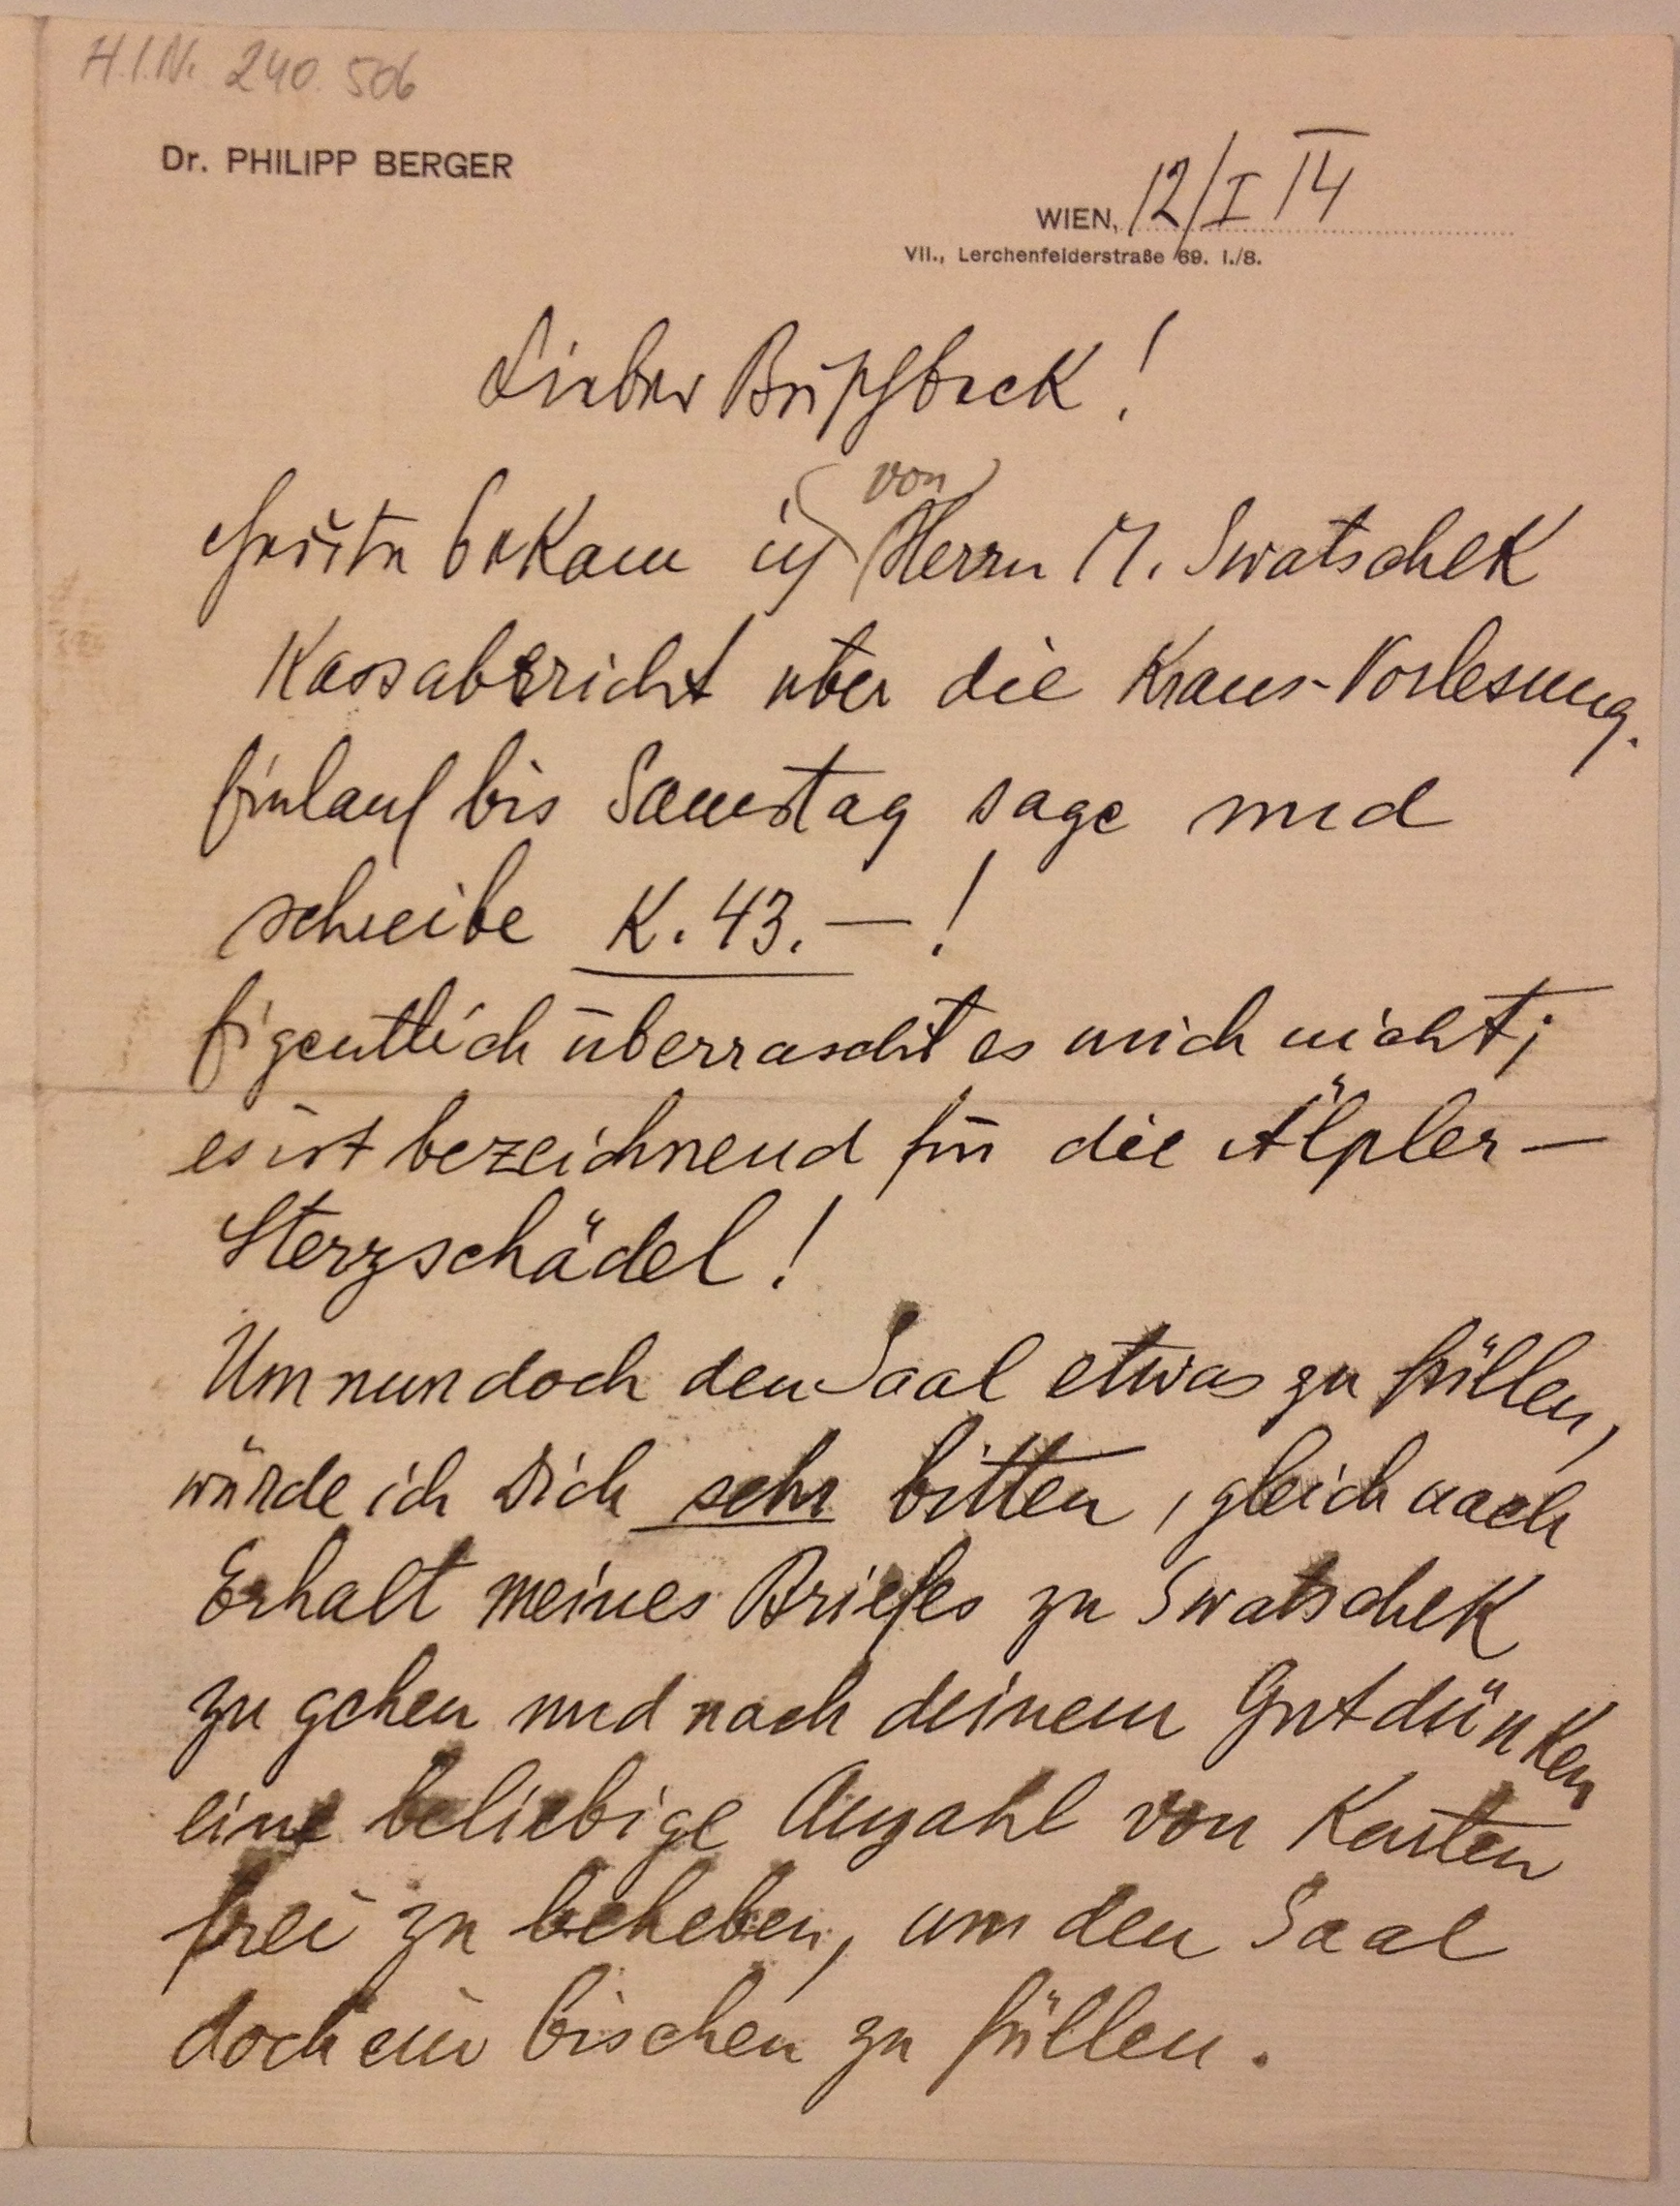 H.I.N. 240.506
Dr. PHILIPP BERGER
WIEN, 12/I 14
VII., Lerchenfelderstraße 69. I./8.
Lieber Buschbeck!
von
Heute bekam ich Herrn M. Swatschek
Kassabericht über die Kraus-Vorlesung.
Einlauf bis Samstag sage und
schreibe K. 43.—!
Eigentlich überrascht es mich nicht;
es ist bezeichnend für die Älpler-
Sterzschädel!
Um nun doch den Saal etwas zu füllen,
würde ich Dich sehr bitten, gleich nach
Erhalt meines Briefes zu Swatschek
zu gehen und nach deinem Gutdünken
eine beliebige Anzahl von Karten
frei zu beheben, um den Saal
doch ein bischen zu füllen.